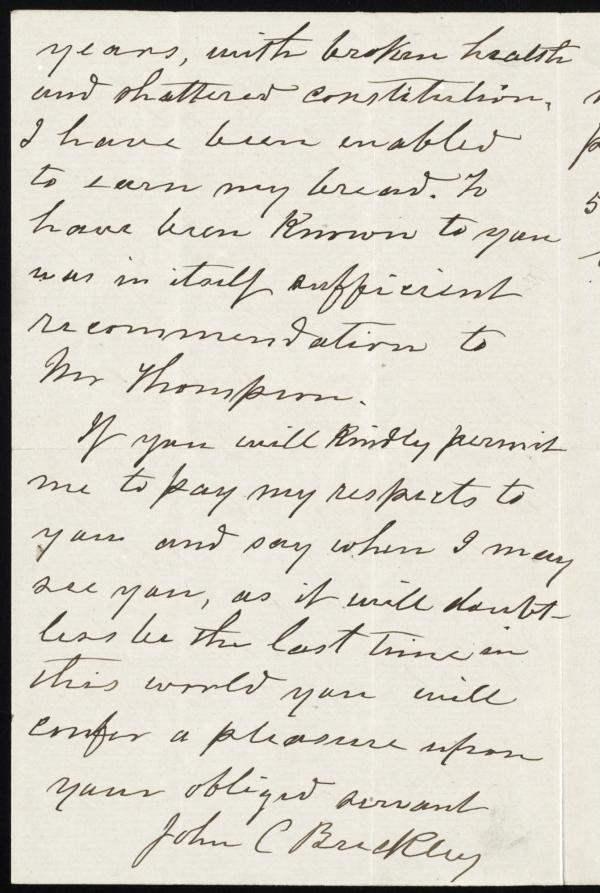 years, with broken health
and shattered constitution,
I have been enabled
to earn my bread. To
have been known to you
was in itself sufficient
recommendation to
Mr Thompson.
If you will kindly permit
me to pay my respects to
you and say when I may
see you, as it will doubt-
less be the last time in
this world you will
confer a pleasure upon
your obliged servant
John C